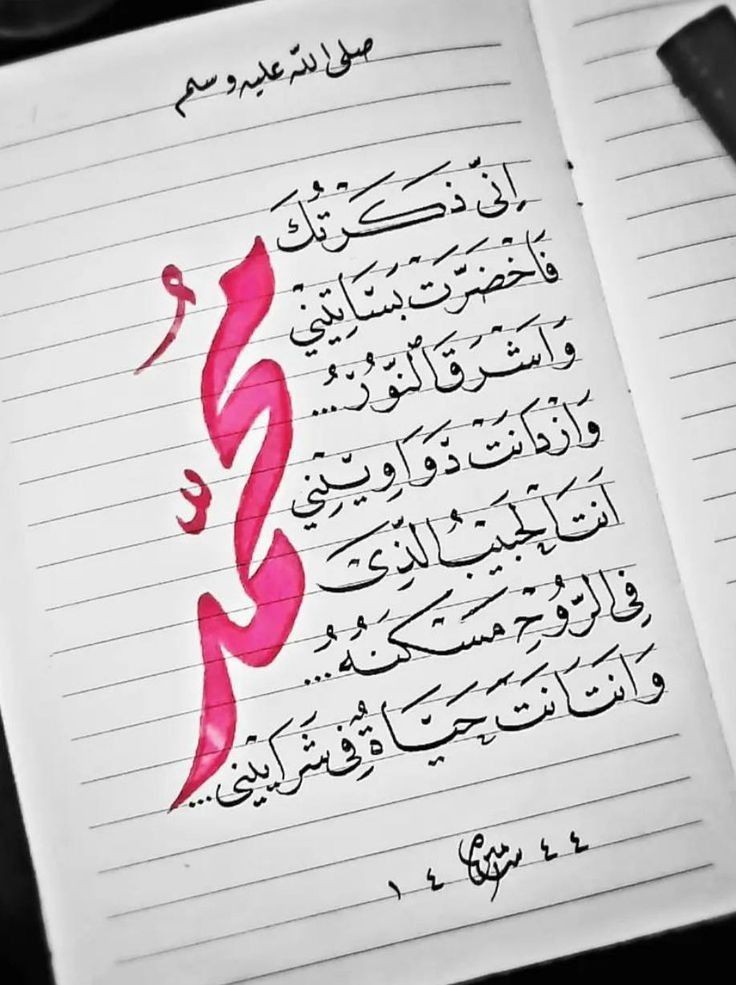 صلى الله عليه وسلم
مُحمّد
اِنّى ذَكَرْتُكَ
فَاخْضَرَّتْ بَسَاتِيْنِيْ
وَاَشْرَقَ النُّوْرُ...
وَازْدَانَتْ دَوَاوِيْنِيْ
اَنْتَ الْحَبِيْبُ الَّذِىْ
فِى الرُّوْحِ مَسْكَنُهُ...
وَاَنْتَ اَنْتَ حَيَاةٌ فِى شَرَايِيْنِى...
١٤ ٤٤